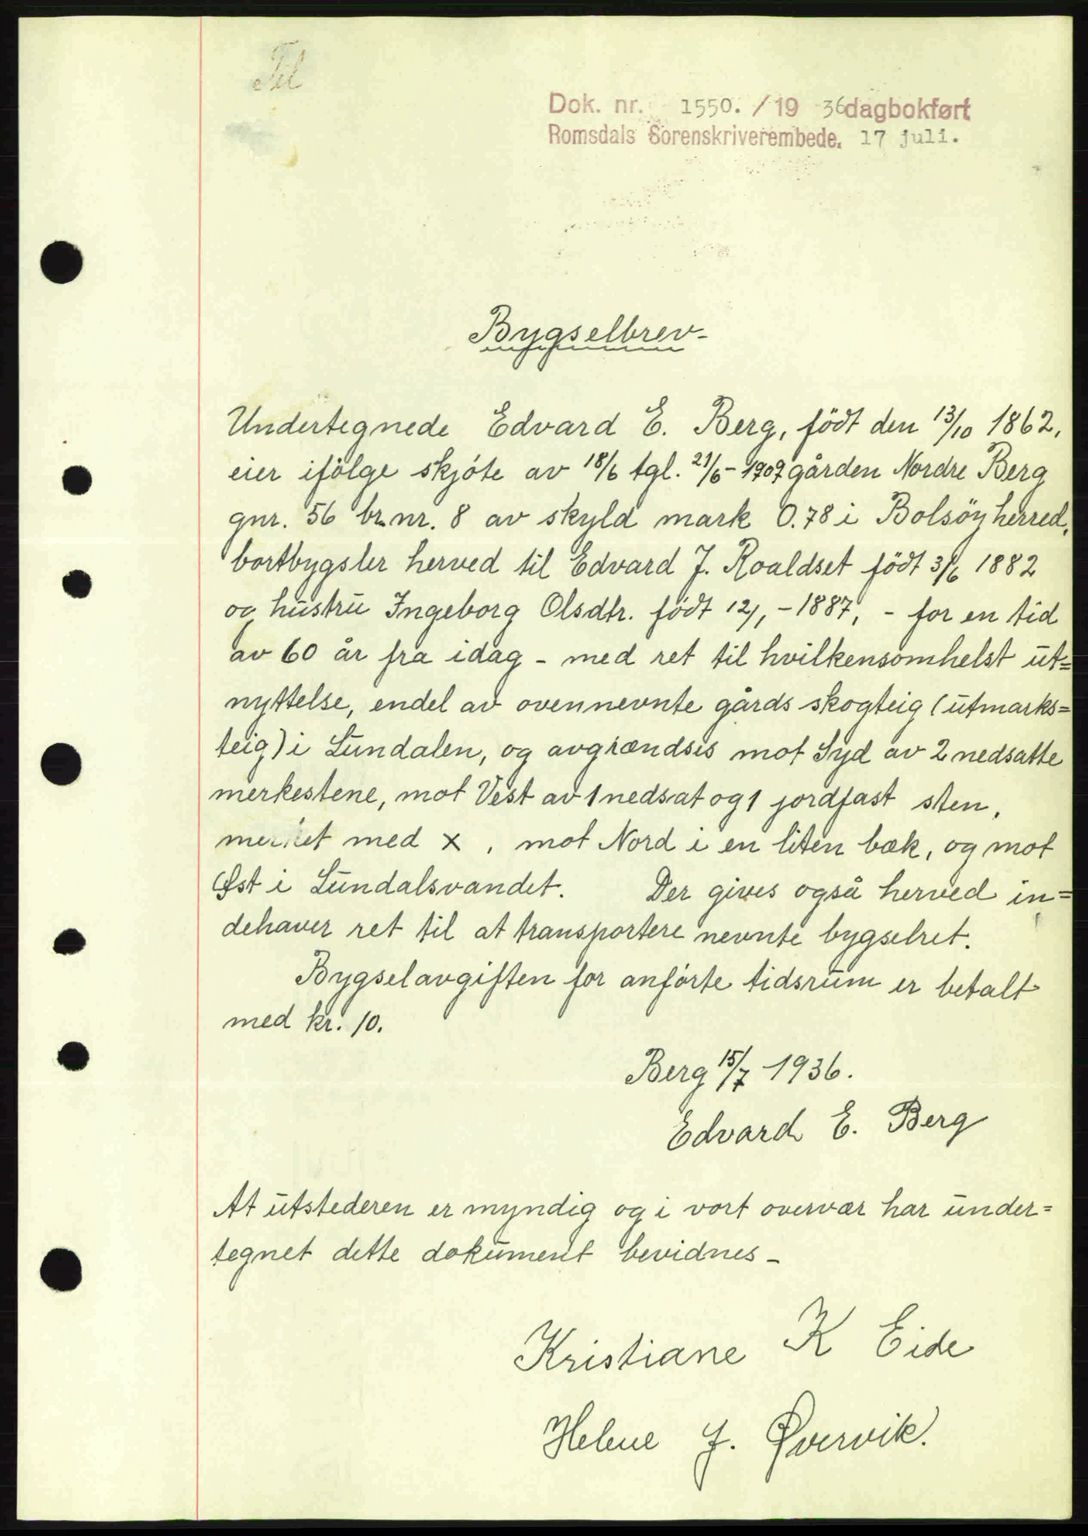 Til
Dok. nr. 1550. / 19 36 dagbokført
Romsdals Sorenskriverembede. 17 juli.
Bygselbrev-
Undertegnede Edvard E. Berg, født den 13/10 1862,
eier ifölge skjöte av 18/6 tgl. 21/6-1909 gården Nordre Berg
gnr. 56 br.nr. 8 av skyld mark 0.78 i Bolsöy herred,
bortbygsler herved til Edvard J. Roaldset født 3/6 1882
og hustru Ingeborg Olsdtr. født 12/1-1887, - for en tid
av 60 år fra idag - med ret til hvilkensomhelst ut=
nyttelse, endel av ovennevnte gårds skogteig (utmarks=
teig) i Lundalen, og avgrændsis mot Syd av 2 nedsatte
merkestene, mot Vest av 1 nedsat og 1 jordfast sten,
merket med x , mot Nord i en liten bæk, og mot
Øst i Lundalsvandet. Der gives også herved in=
dehaver ret til at transportere nevnte bygselret.
Bygselavgiften for anförte tidsrum er betalt
med kr. 10.
Berg 15/7 1936.
Edvard E. Berg
At utstederen er myndig og i vort overvær har under=
tegnet dette dokument bevidnes -
Kristiane K Eide
Helene J. Øvervik.